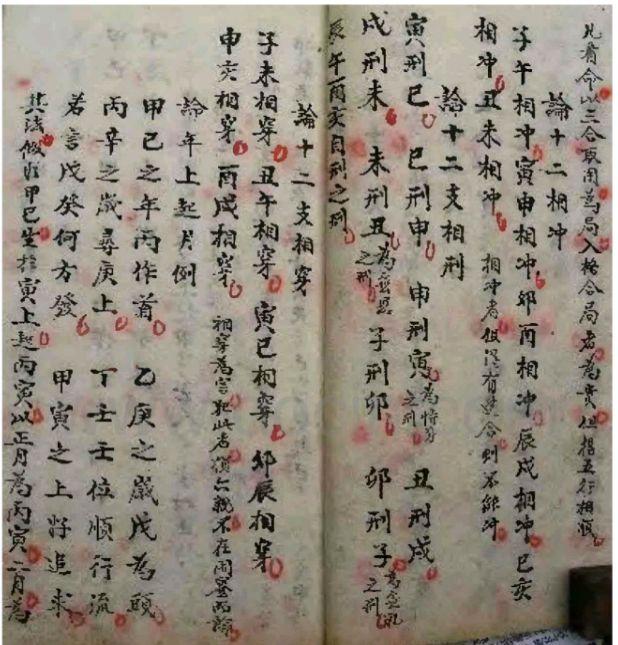 凡看命以三合取用為局入格合局者為貴但揩五行相順
論十二相冲
子午相冲寅申相冲卯酉相冲辰戌相冲巳亥
相冲丑未相冲 相冲者但得有合則不能冲
論十二支相刑
寅刑巳 巳刑申 申刑寅為恃勢之刑 丑刑戌
戌刑未 未刑丑為之刑 子刑卯 卯刑子為無礼之刑
辰午酉亥自刑之刑
論十二支相穿
子未相穿丑午相穿寅巳相穿卯辰相穿
申亥相穿酉戌相穿 相穿為害犯此者六親不在
論年上起月例
甲己之年丙作首 乙庚之歲戊為頭
丙辛之歲尋庚上 丁壬壬位順行流
若言戊癸何方發 甲寅之上好追求
其法假如甲己生於寅上起丙寅以正月為丙寅二月為